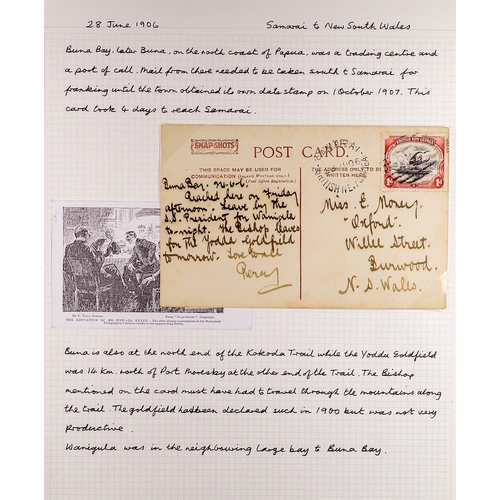 28 June 1906 Samarai to New South Wales
Buna Bay, later Buna, on the north coast of Papua, was a trading centre and
a port of call. Mail from there needed to be taken south to Samarai for
franking until the town obtained its own date stamp on 1 October 1907. This
card took 4 days to reach Samarai.
SNAP-SHOTS
POST CARD.
THIS SPACE MAY BE USED FOR
COMMUNICATION
WRITTEN HERE
SAMARAI
BRITISH NEW GUINEA
Buna Bay. 24.6.6.
Arrived here on Friday
afternoon. Leave by the
S.S. President for Wanigela
to-night. The Bishop leaves
for the Yodda Goldfield
tomorrow. Love to all
Percy
Miss. E. Morey
"Oxford"
Willee Street.
Burwood.
N. S. Wales.
THE EDUCATION OF MR PIPP
Buna is also at the north end of the Kokoda Trail while the Yodda Goldfield
was 14 km north of Port Moresby at the other end of the Trail. The Bishop
mentioned on the card must have had to travel through the mountains along
the trail. The goldfield had been declared such in 1900 but was not very
productive.
Wanigula was in the neighbouring large bay to Buna Bay.